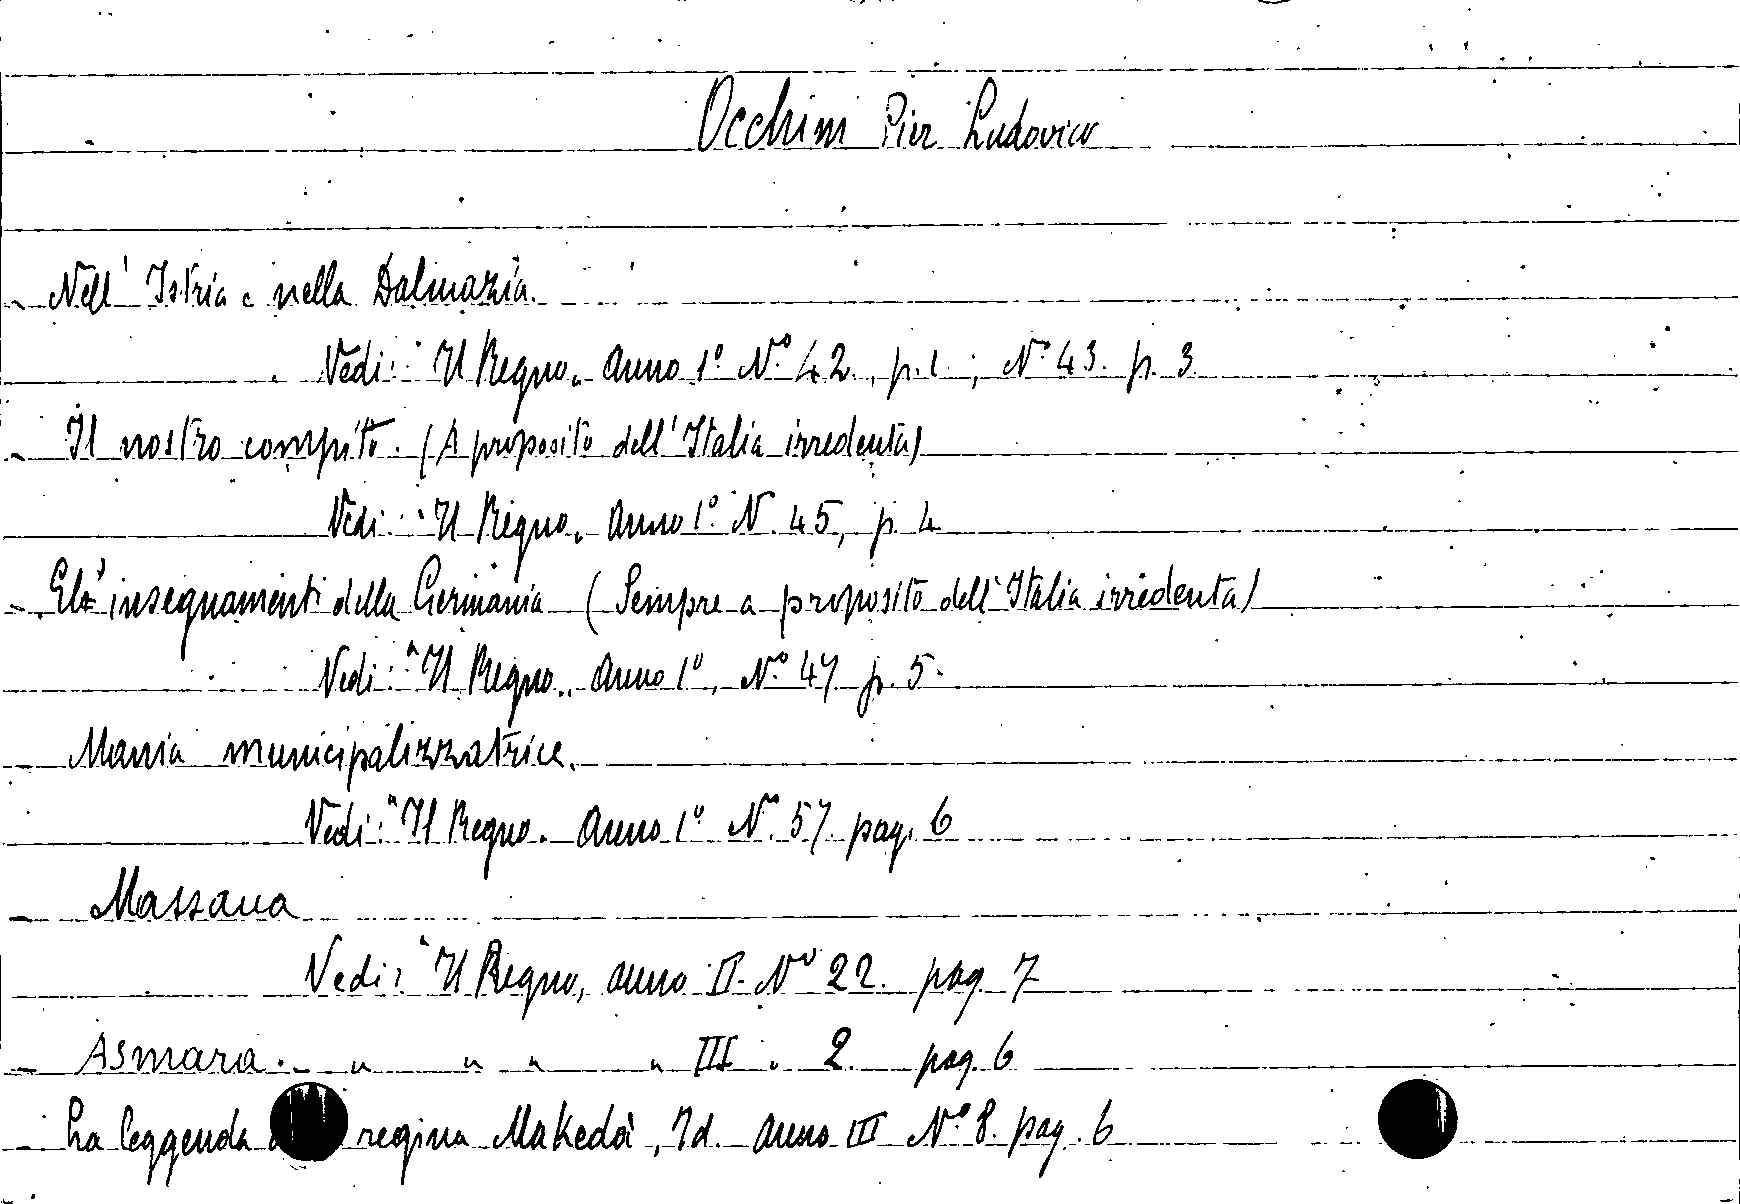 Occhini Pier Ludovico
- Nell' Istria e nella Dalmazia.
Vedi: "Il Regno" Anno 1º Nº 42., p. 1.; Nº 43. p. 3
- Il nostro compito. (A proposito dell'Italia irredenta)
Vedi: "Il Regno" Anno 1º N. 45, p. 4
- Gl' insegnamenti della Germania (Sempre a proposito dell'Italia irredenta)
Vedi: "Il Regno" Anno 1º, Nº 47 p. 5.
- Mania municipalizzatrice.
Vedi: "Il Regno" Anno 1º Nº 57 pag. 6
- Massaua
Vedi: "Il Regno, anno II. Nº 22. pag. 7
- Asmara. " " " " III " 2. pag. 6
- La leggenda regina Makedà, Id. Anno III Nº 8. pag. 6